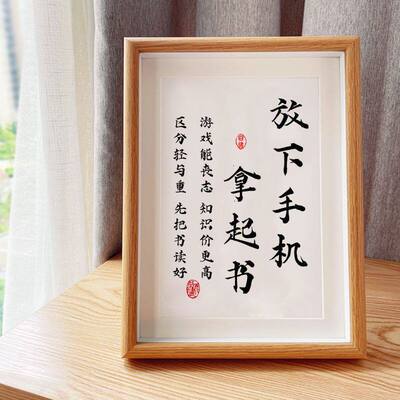 放下手机
拿起书
游戏能丧志 知识价更高
区分轻与重 先把书读好